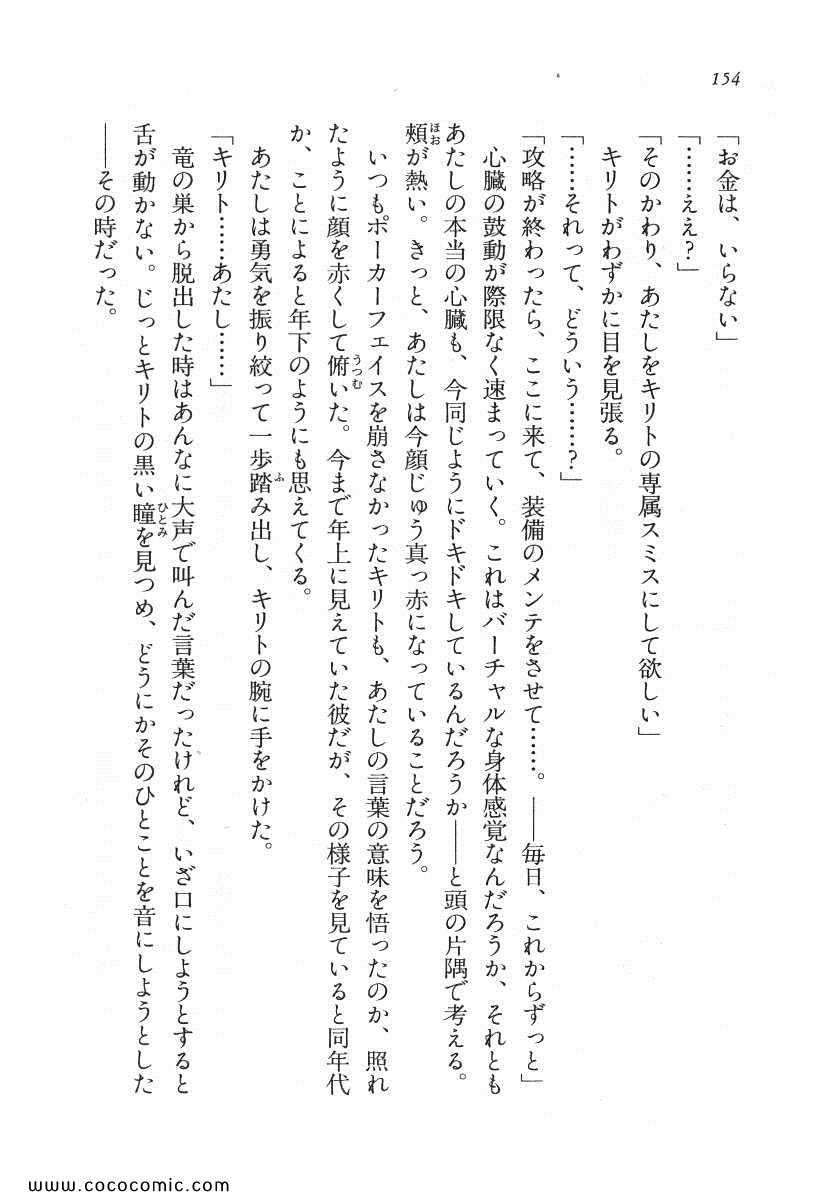 154
「お金は、いらない」
「……ええ？」
「そのかわり、あたしをキリトの専属スミスにして欲しい」
キリトがわずかに目を見張る。
「……それって、どういう……？」
「攻略が終わったら、ここに来て、装備のメンテをさせて……。――毎日、これからずっと」
心臓の鼓動が際限なく速まっていく。これはバーチャルな身体感覚なんだろうか、それとも
あたしの本当の心臓も、今同じようにドキドキしているんだろうか――と頭の片隅で考える。
頬が熱い。きっと、あたしは今顔じゅう真っ赤になっていることだろう。
いつもポーカーフェイスを崩さなかったキリトも、あたしの言葉の意味を悟ったのか、照れ
たように顔を赤くして俯いた。今まで年上に見えていた彼だが、その様子を見ていると同年代
か、ことによると年下のようにも思えてくる。
あたしは勇気を振り絞って一歩踏み出し、キリトの腕に手をかけた。
「キリト……あたし……」
竜の巣から脱出した時はあんなに大声で叫んだ言葉だったけれど、いざ口にしようとすると
舌が動かない。じっとキリトの黒い瞳を見つめ、どうにかそのひとことを音にしようとした
――その時だった。
www.cococomic.com